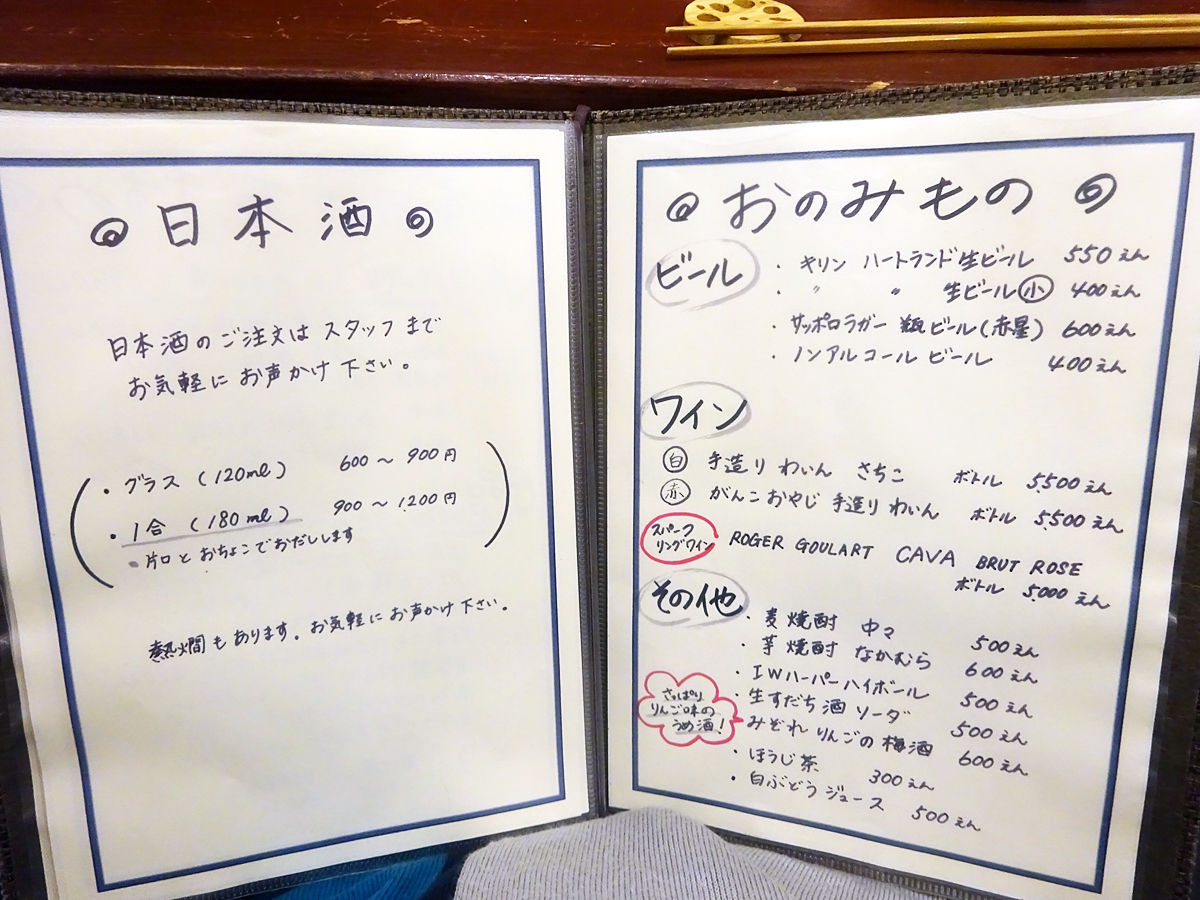 日本酒
日本酒のご注文は スタッフまで
お気軽に お声かけ 下さい。
・グラス (120ml) 600〜900円
・1合 (180ml) 900〜1,200円
・片口とおちょこでおだしします
熱燗もあります。お気軽にお声かけ下さい。
おのみもの
ビール
・キリン ハートランド生ビール 550えん
・〃 〃 生ビール小 400えん
・サッポロラガー 瓶ビール(赤星) 600えん
・ノンアルコール ビール 400えん
ワイン
白 手造り わいん さちこ ボトル 5,500えん
赤 がんこおやじ 手造り わいん ボトル 5,500えん
スパーク
リングワイン
ROGER GOULART CAVA BRUT ROSE
ボトル 5,000えん
その他
・麦焼酎 中々 500えん
・芋焼酎 なかむら 600えん
・IWハーパーハイボール 500えん
・生すだち酒 ソーダ 500えん
さっぱり
りんご味の
うめ酒!
・みぞれ りんごの 梅酒 600えん
・ほうじ茶 300えん
・白ぶどうジュース 500えん